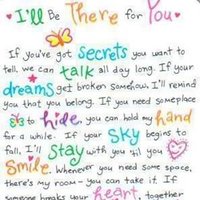 I'll Be There for You
If you've got secrets you want to
tell, we can talk all day long. If your
dreams get broken somehow, I'll remind
you that you belong. If you need someplace
to hide, you can hold my hand
for a while. If your sky begins to
fall, I'll stay with you 'til you
smile. Whenever you need some space,
there's my room – you can take it. If
someone breaks your heart, together